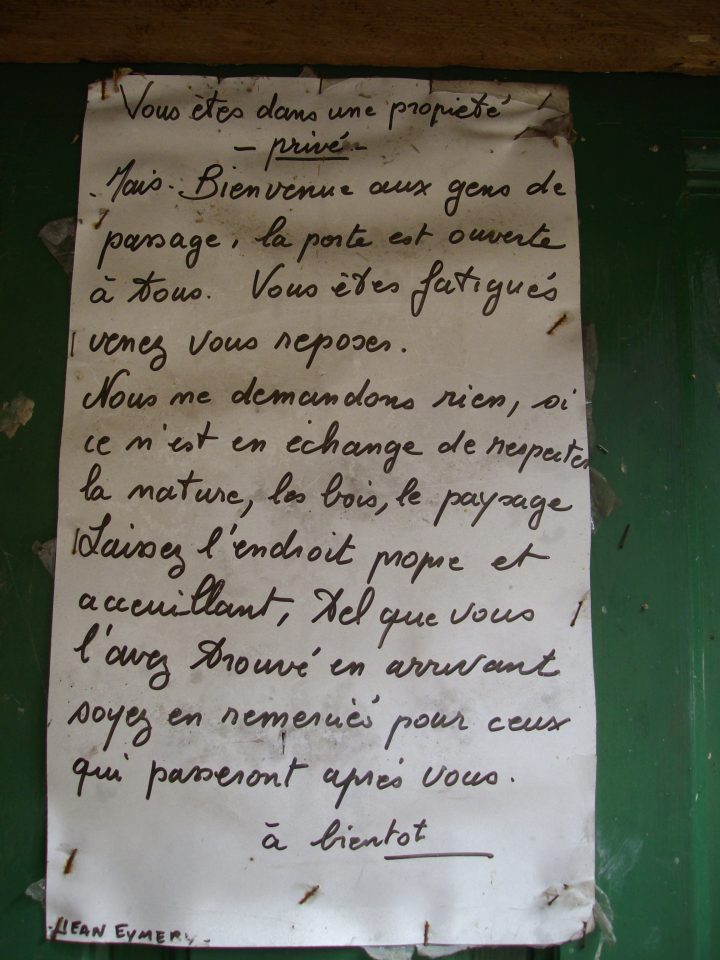 Vous êtes dans une propieté
- privé -
. Mais. Bienvenue aux gens de
passage, la porte est ouverte
à tous. Vous êtes fatigués
venez vous reposer.
Nous ne demandons rien, si
ce n'est en échange de respecter
la nature, les bois, le paysage
Laissez l'endroit propre et
acceuillant, tel que vous
l'avez trouvé en arrivant
soyez en remerciés pour ceux
qui passeront aprés vous.
à bientot
JEAN EYMERY.